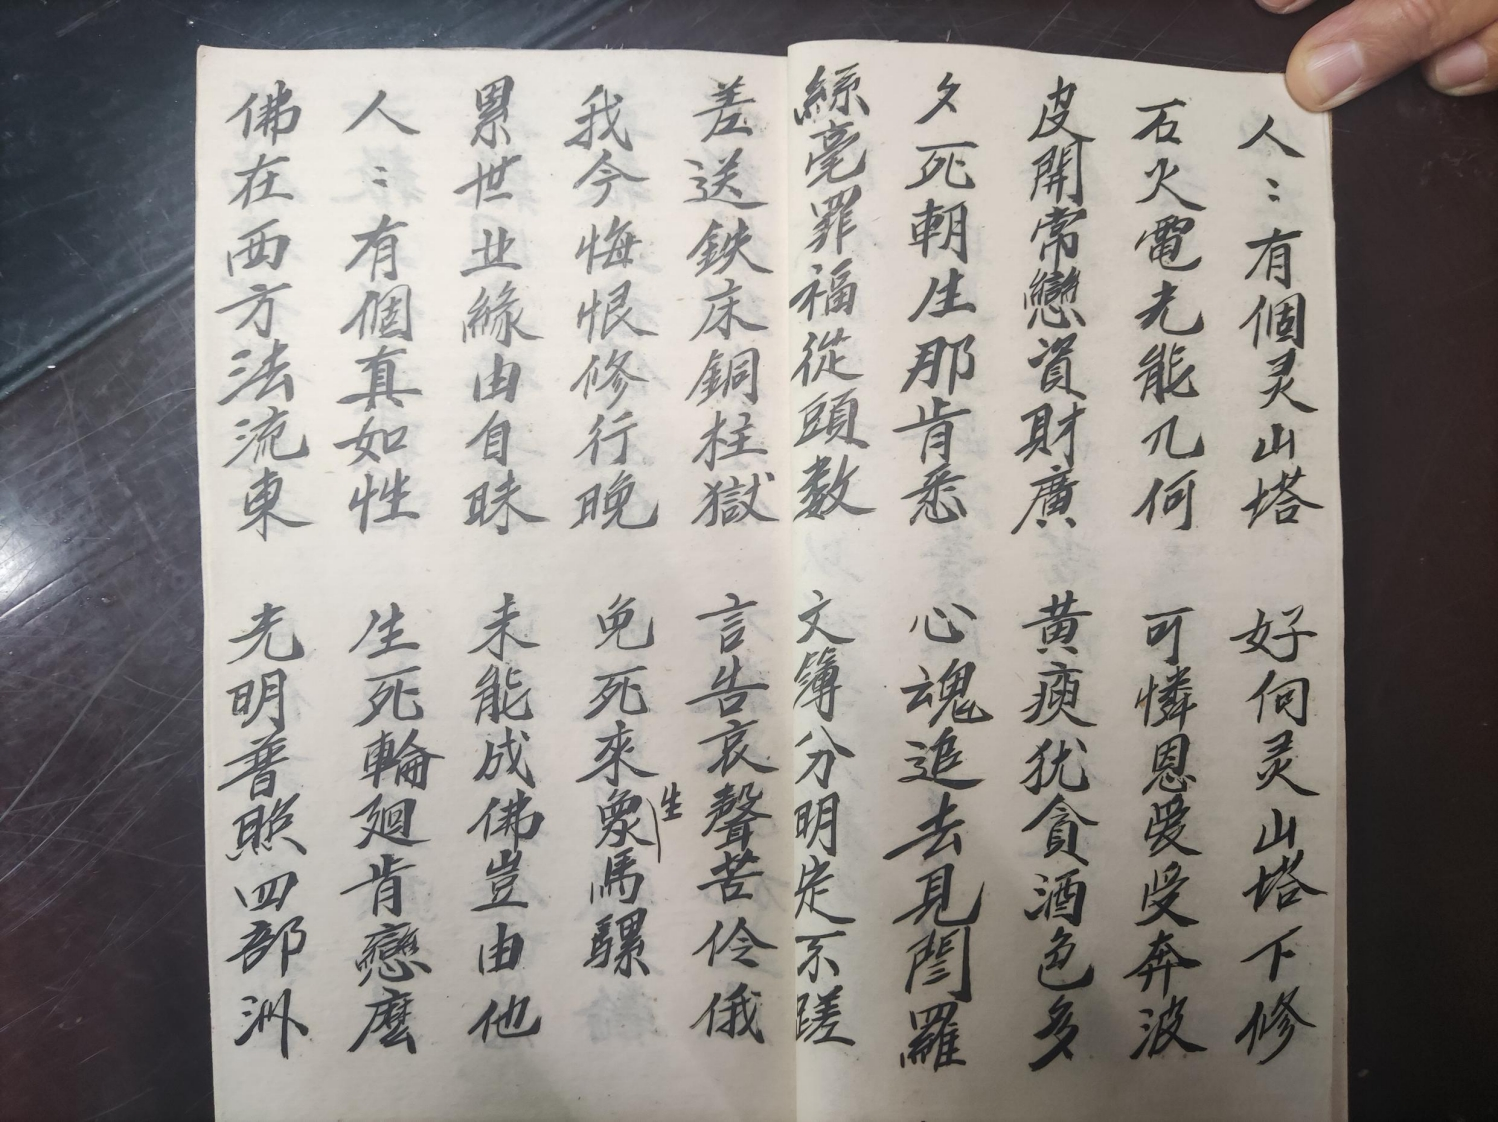 人〻有個灵山塔　好向灵山塔下修
石火電光能几何　可憐恩愛受奔波
皮開常戀資財廣　黃瘐犹貪酒色多
夕死朝生那肯悉　心魂追去見閻羅
絲毫罪福從頭数　文簿分明定不蹉
差送鉄床銅柱獄　言告哀聲苦伶俄
我今悔恨修行晚　免死來生象馬騾
累世业緣由自昧　未能成佛豈由他
人〻有個真如性　生死輪廻肯戀麼
佛在西方法流東　光明普照四部洲